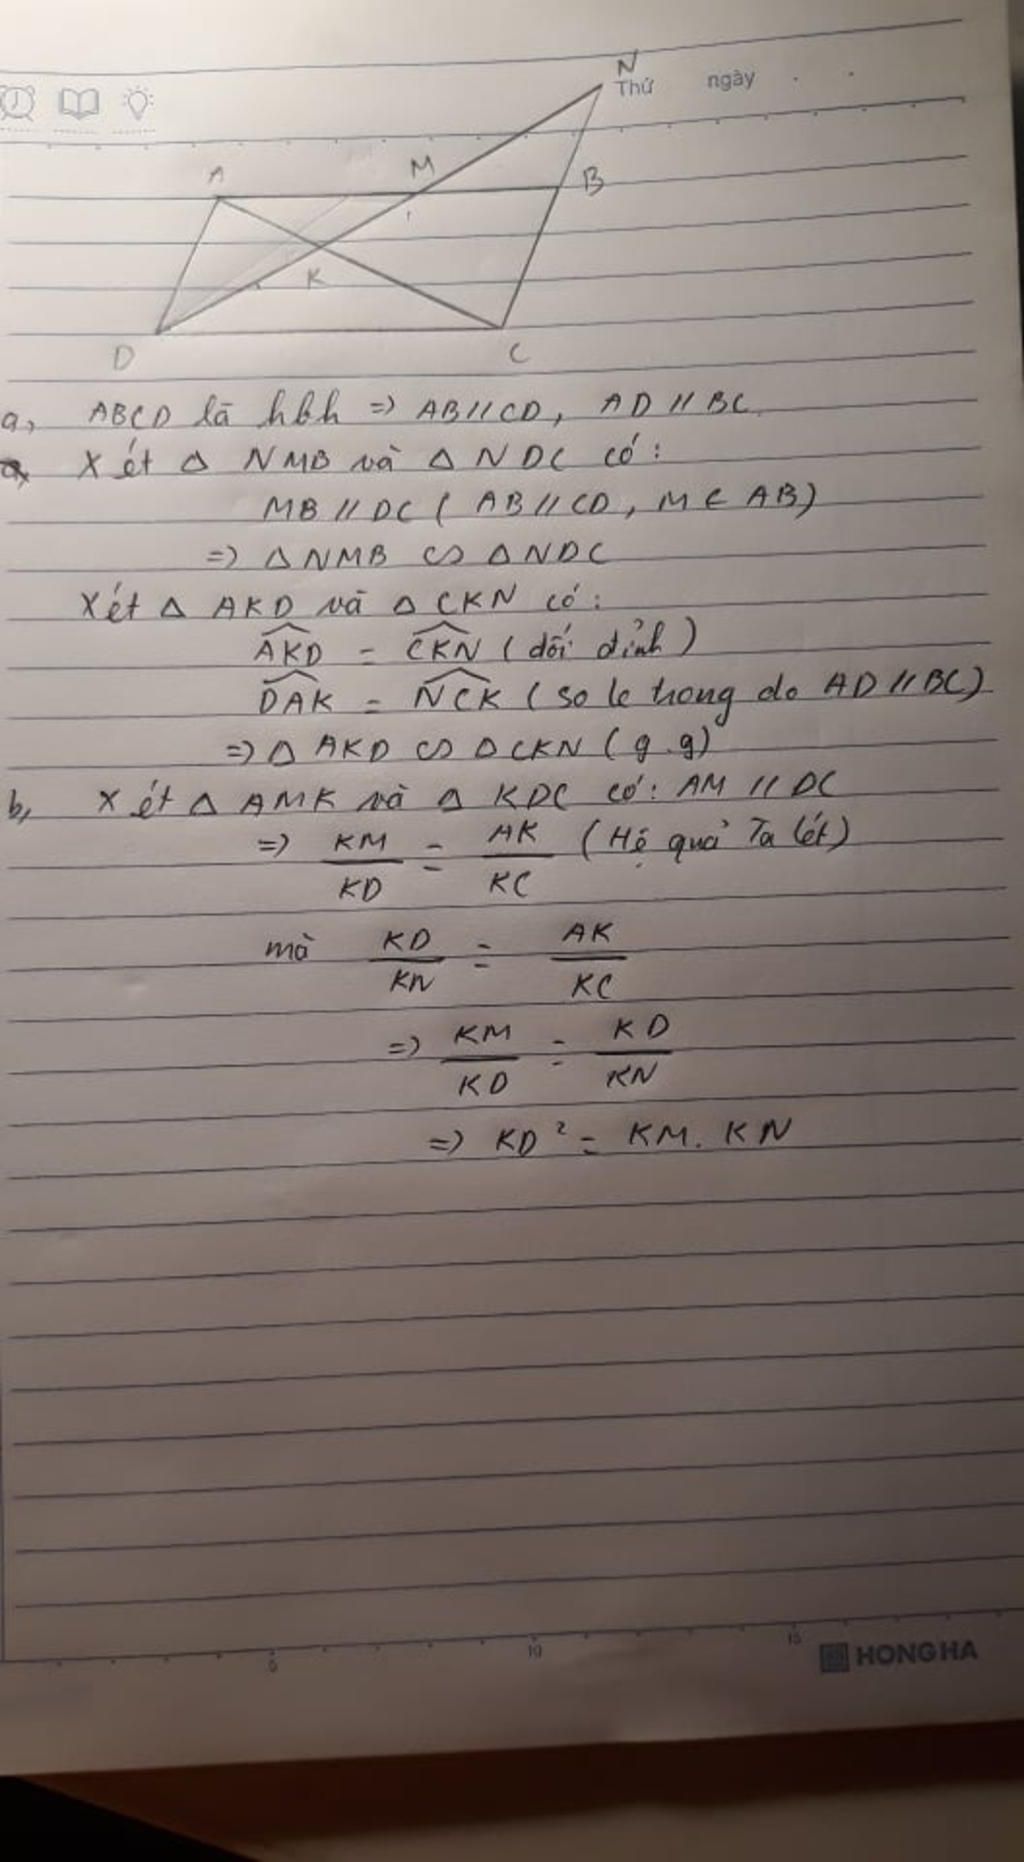 N
Thứ ngày
A M B
K
D C
a, ABCD là hbh => AB//CD, AD//BC
Xét Δ NMB và Δ NDC có:
MB//DC ( AB//CD, M ∈ AB)
=> ΔNMB ∽ ΔNDC
Xét Δ AKD và Δ CKN có:
\widehat{AKD} = \widehat{CKN} ( đối đỉnh )
\widehat{DAK} = \widehat{NCK} ( so le trong do AD//BC)
=> Δ AKD ∽ ΔCKN ( g.g)
b, Xét Δ AMK và Δ KDC có: AM // DC
=> KM/KD = AK/KC (Hệ quả Ta lét)
mà KD/KN = AK/KC
=> KM/KD = KD/KN
=> KD² = KM. KN
5 10 15
HONG HA